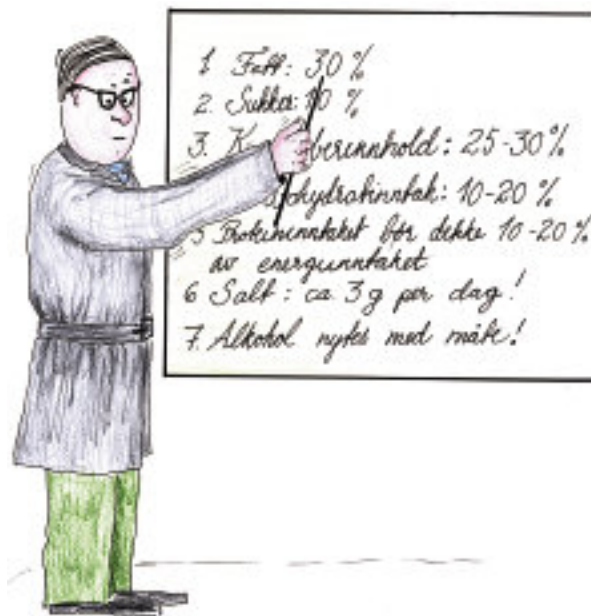 1. Fett: 30 %
2. Sukker: 10 %
3. berinnhold: 25-30%
hydratinntak: 10-20 %
5 Proteininntaket bør dekke 10-20 %
av energiinntaket
6 Salt: ca. 3 g per dag!
7. Alkohol nytes med måte!